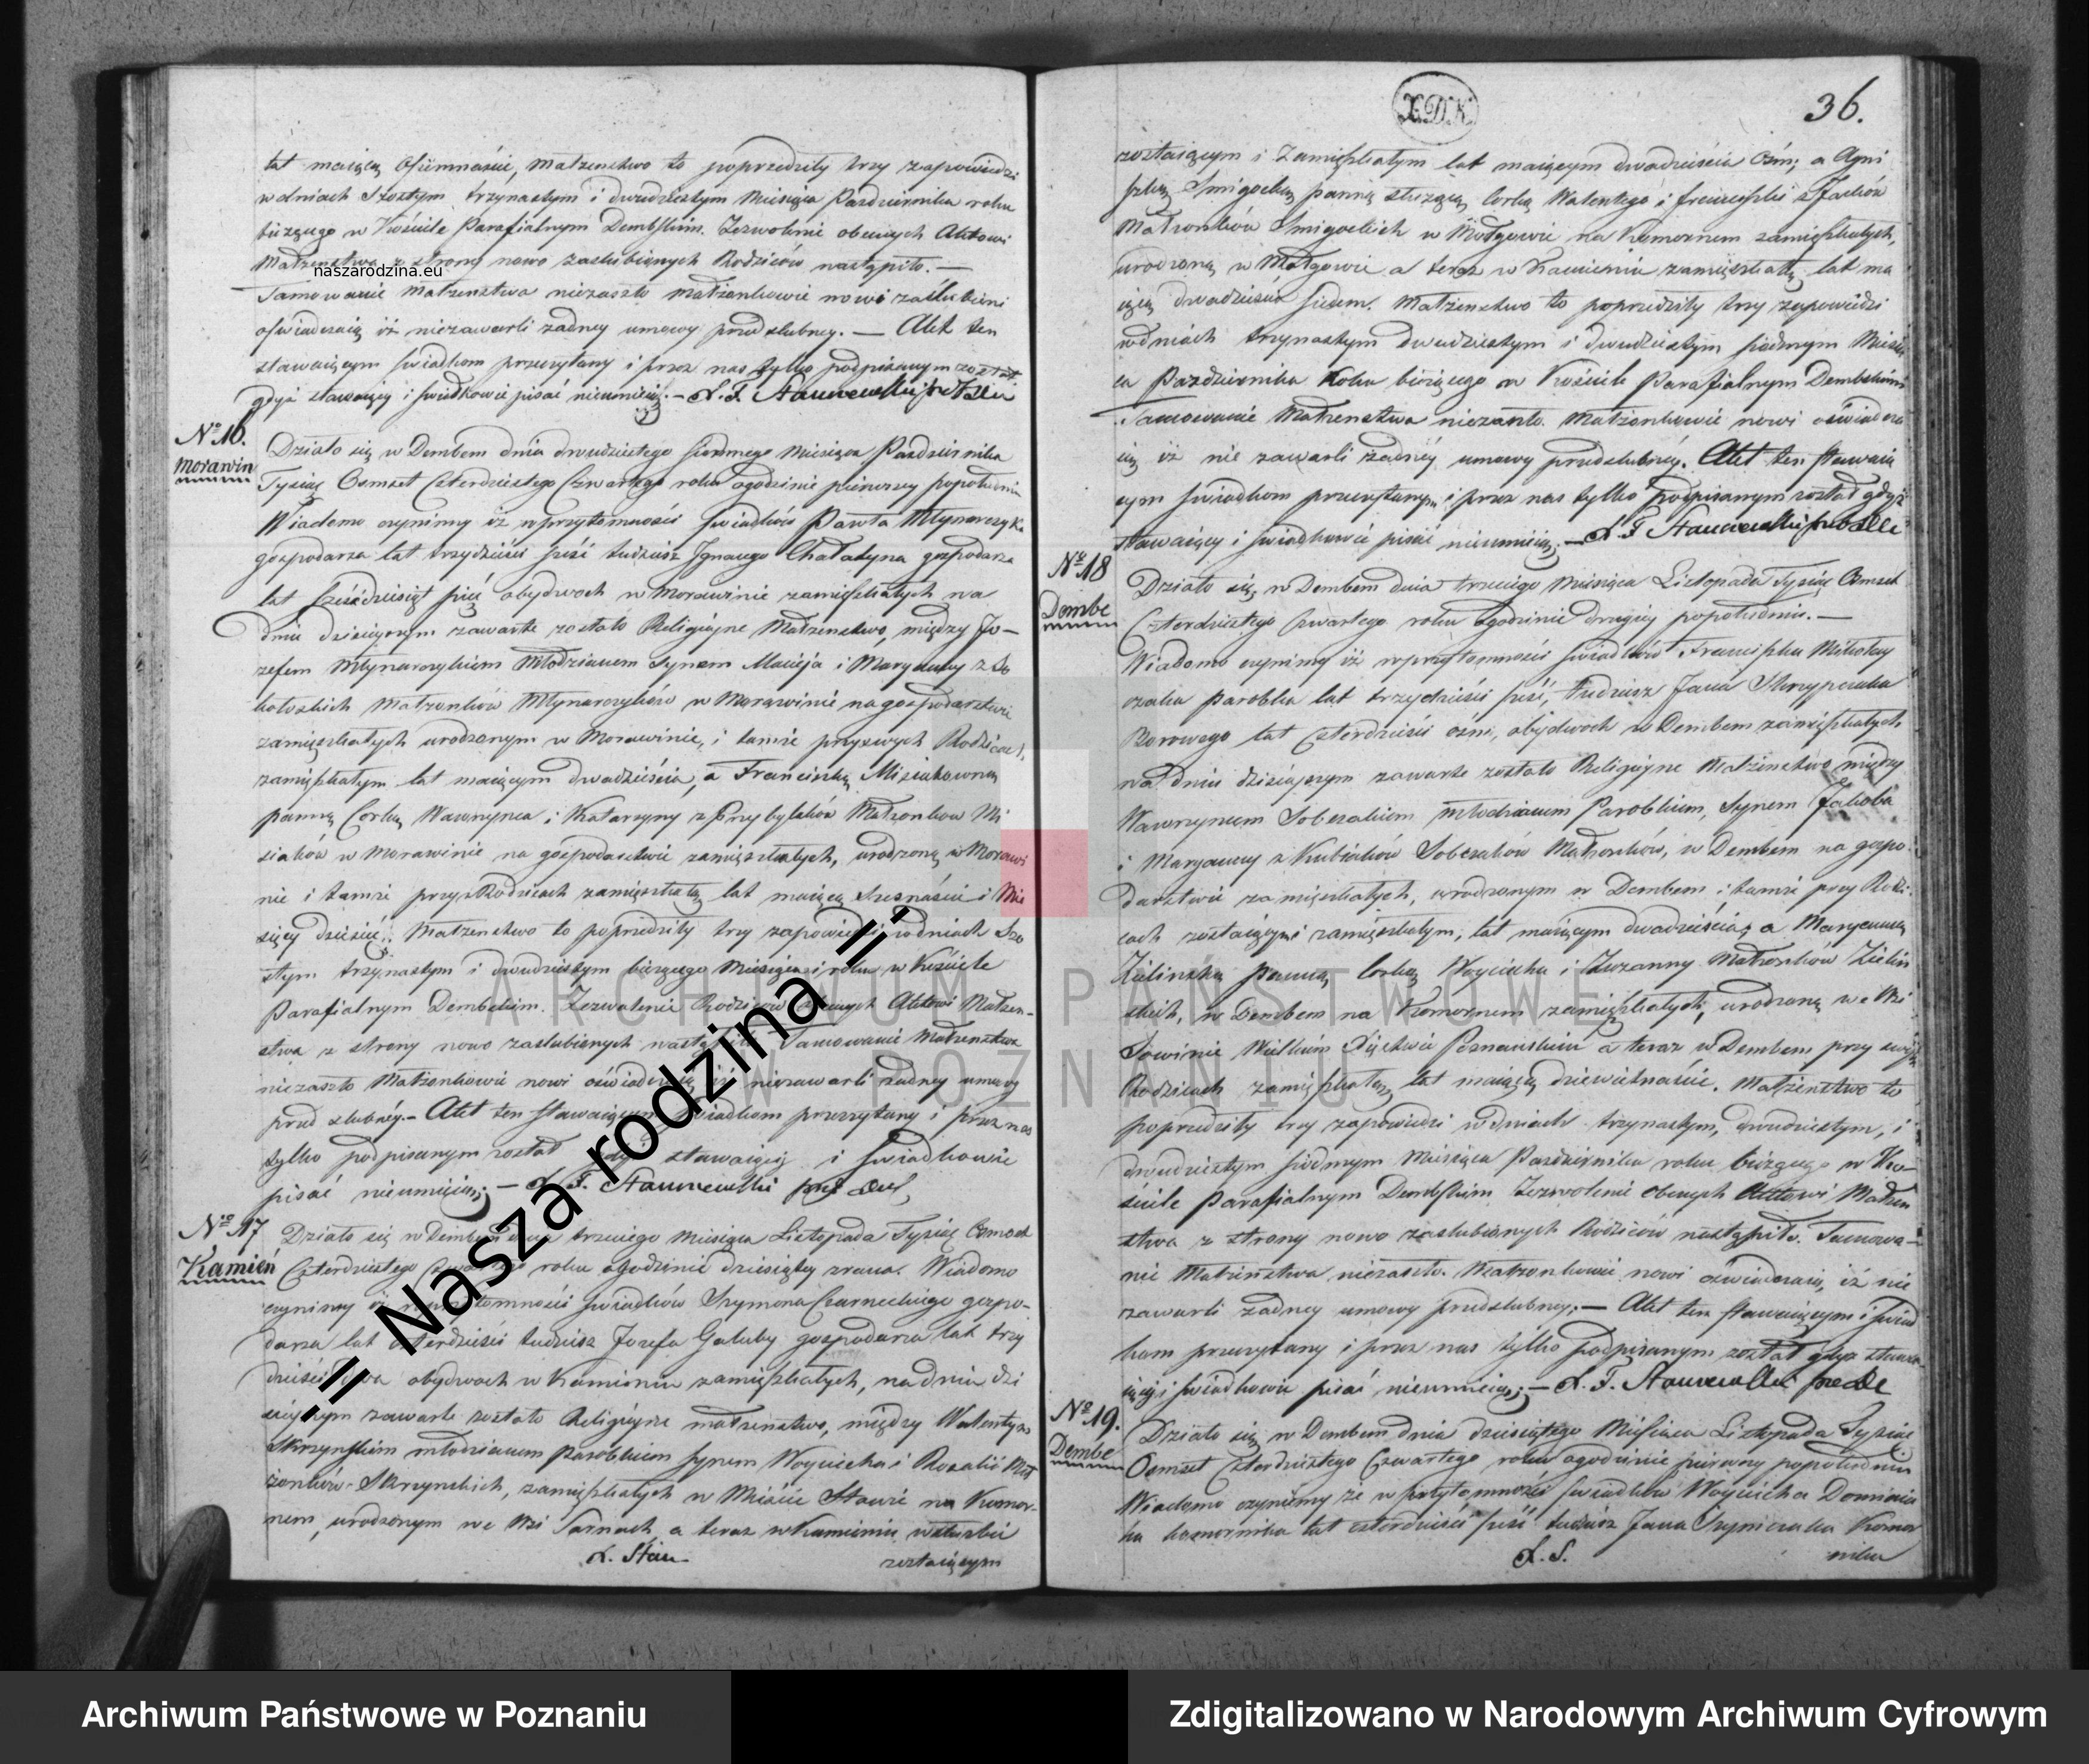 lat maiącą Ośiemnaście, Małżenstwo to poprzedziły trzy zapowiedzi
w dniach Szóstym trzynastym i dwudziestym Miesiąca Pazdziernika roku
bieżącego w Kościele Parafialnym Dembskim. Zezwolenie obecnych Aktowi
Małżenstwa z strony nowo zaslubionych Rodziców nastąpiło. —
naszarodzina.eu
Tamowanie Małżenstwa niezaszło Małżonkowie nowi zaślubieni
oświadczaią iż niezawarli żadney umowy przedslubney. — Akt ten
stawaiącym świadkom przeczytany i przez nas tylko podpisanym został
gdyż stawaiący i świadkowie pisać nieumieią. —
No 16.
Morawin
Działo się w Dembem dnia dwudziestego siodmego Miesiąca Pazdziernika
Tysiąc Osmset Czterdziestego Czwartego roku o godzinie pierwszy popołudniu
Wiadomo czynimy iż w przytomności świadków Pawła Młynarczyka
gospodarza lat trzydzieści sześć tudzież Ignacego Chałatyna gospodarza
lat sześćdziesiąt pięć obydwoch w Morawinie zamięszkałych na
dniu dzisieyszym zawarte zostało Religiyne Małżenstwo, między Jó—
zefem Młynarczykiem Młodzianem Synem Macieja i Maryanny z So
kołoskich Małżonków Młynarczyków w Morawinie na gospodarstwie
zamięszkałych urodzonym w Morawinie, i tamże przy swych Rodzicach,
zamięszkałym lat maiącym dwadzieścia, a Franciszką Misiakowną
panną Corką Wawrzynca i Katarzyny z Przybylaków Małżonkow Mi
siaków w Morawinie na gospodarstwie zamięszkałych, urodzoną w Morawi
nie i tamże przy Rodzicach zamięszkałą lat maiącą Szesnaście i Mie
sięcy dziesięć. Małżenstwo to poprzedziły trzy zapowiedzi w dniach Szo
stym trzynastym i dwudziestym bieżącego Miesiąca i roku w Kościele
Parafialnym Dembskim. Zezwolenie Rodziców obecnych Aktowi Małżen-
stwa z strony nowo zaslubionych nastąpiło. Tamowanie Małżenstwa
niezaszło Małżonkowie nowi oświadczaią iż niezawarli żadney umowy
przed slubney.— Akt ten stawaiącym świadkom przeczytany i przez nas
tylko podpisanym został gdyż stawaiący i świadkowie
pisać nieumieią; —
No 17
Kamień
Działo się w Dembem dnia trzeciego Miesiąca Listopada Tysiąc Osmset
Czterdziestego Czwartego roku o godzinie dziesiątey zrana. Wiadomo
czynimy iż w przytomności świadków Szymona Czarneckiego gospo-
darza lat czterdzieści tudzież Jozefa Gałuby gospodarza lat trzy
dzieści dwa obydwoch w Kamieniu zamięszkałych, na dniu dzi
sieyszym zawarte zostało Religiyne małżenstwo, między Walentym
Skrzynskim młodzianem parobkiem synem Woyciecha i Rozalii Mał
żonków Skrzynskich, zamięszkałych w Mieście Stawie na Komor-
nem, urodzonym we Wsi Sarnach a teraz w Kamieniu w służbie
zostaiącym
.:= Nasza rodzina =:.
X.D.K.
36.
zostaiącym i zamięszkałym lat maiącym dwadzieścia Ośm; a Agni
szką Smigocką panną służącą Corką Walentego i Franciszki
Małżonków Smigockich w na Komornem zamięszkałych,
urodzoną w a teraz w Kamieniu zamięszkałą lat ma
iącą dwadzieścia siedem. Małżenstwo to poprzedziły trzy zapowiedzi
w dniach trzynastym dwudziestym i dwudziestym siodmym Miesią
ca Pazdziernika Roku bieżącego w Kościele Parafialnym Dembskim
Tamowanie Małżenstwa niezaszło. Małżonkowie nowi oświadcza
ią iż nie zawarli żadnéy umowy przedslubnéy. Akt ten stawaią
cym świadkom przeczytany i przez nas tylko podpisanym został gdyż
stawaiący i świadkowie pisać nieumieią; —
No 18
Dembe
Działo się w Dembem dnia trzeciego Miesiąca Listopada Tysiąc Osmset
Czterdziestego Czwartego roku o godzinie drugiey popołudniu. —
Wiadomo czynimy iż w przytomności świadków Franciszka Mikołay
czaka parobka lat trzydzieści pięć, tudzież Jana Skrzypczaka
Borowego lat czterdzieści ośm, obydwoch w Dembem zamięszkałych,
na dniu dzisieyszym zawarte zostało Religiyne Małżenstwo między
Wawrzyncem Soberakiem młodzianem Parobkiem, Synem Jakoba
i Maryanny z Kubiaków Soberaków Małżonków, w Dembem na gospo-
darstwie zamięszkałych, urodzonym w Dembem i tamże przy Rodzi-
cach zostaiącym i zamięszkałym, lat maiącym dwadzieścia, a Maryanną
Zielinską panną Corką Woyciecha i Zuzanny Małżonków Zielin
skich, w Dembem na Komornem zamięszkałych, urodzoną we Wsi
Sowinie Wielkim Xięstwie Poznanskim a teraz w Dembem przy swych
Rodzicach zamięszkałą, lat maiącą dziewiętnaście. Małżenstwo to
poprzedziły trzy zapowiedzi w dniach trzynastym, dwudziestym, i
dwudziestym siodmym Miesiąca Pazdziernika roku bieżącego w Ko—
ściele Parafialnym Dembskim Zezwolenie obecnych Aktowi Małżen
stwa z strony nowo zaslubionych Rodziców nastąpiło. Tamowa—
nie Małżenstwa niezaszło. Małżonkowie nowi oświadczaią, iż nie
zawarli żadney umowy przedslubney. — Akt ten stawaiącym i świad
kom przeczytany i przez nas tylko podpisanym został gdyż stawa-
iący i świadkowie pisać nieumieią; —
No 19.
Dembe
Działo się w Dembem dnia dziesiątego Miesiąca Listopada Tysiąc
Osmset Czterdziestego Czwartego roku o godzinie pierwszy popołudniu
Wiadomo czyniemy że w przytomności świadków Woyciecha Dominia
ka komornika lat czterdzieści pięć tudzież Jana Szymczaka Komor
nika
ARCHIWUM PAŃSTWOWE
W POZNANIU
Archiwum Państwowe w Poznaniu
Zdigitalizowano w Narodowym Archiwum Cyfrowym